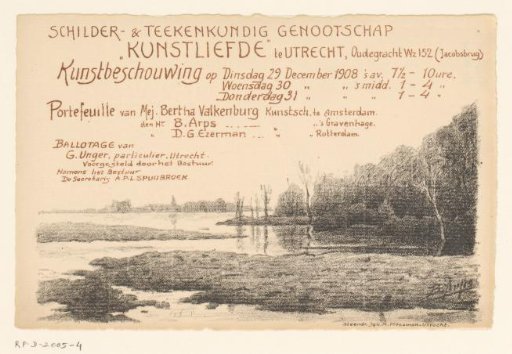 SCHILDER- & TEEKENKUNDIG GENOOTSCHAP
„KUNSTLIEFDE” te UTRECHT, Oudegracht Wz 152 (Jacobsbrug)
Kunstbeschouwing op Dinsdag 29 December 1908 's av. 7½ - 10 ure.
Woensdag 30 „ „ 's midd. 1 - 4 „
Donderdag 31 „ „ „ 1 - 4 „
Portefeuille van Mej. Bertha Valkenburg Kunstsch. te Amsterdam.
den Hr. B. Arps „ „ 's Gravenhage.
„ D.G. Ezerman „ „ Rotterdam.
BALLOTAGE van
G. Unger, particulier, Utrecht.
Voorgesteld door het Bestuur.
Namens het Bestuur
De Secretaris A.P.L. SPUIJBROEK
Steendr. Utrecht.
RP-D-2005-4